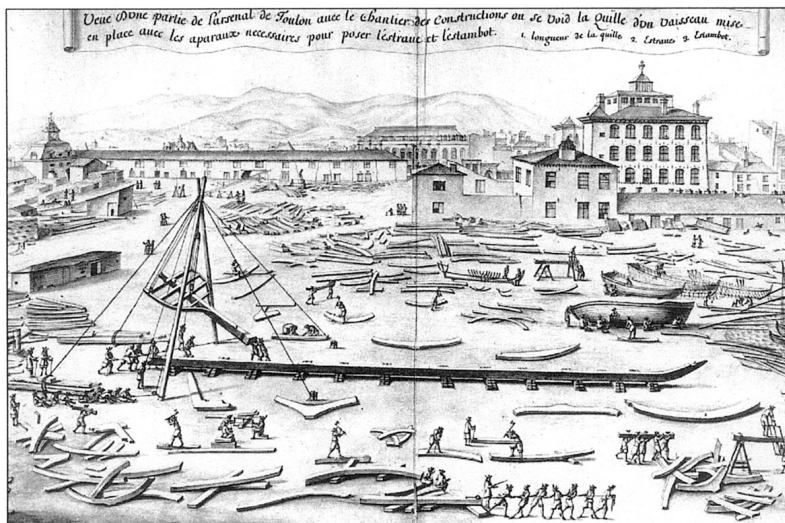 Veüe D'une partie de l'arsenal de Toulon avec le Chantier des Constructions ou se Void la Quille d'un Vaisseau mise
en place avec les aparaux necessaires pour poser l'estrave et l'estambot. 1. longueur de la quille 2. Estrave 3. Estambot.